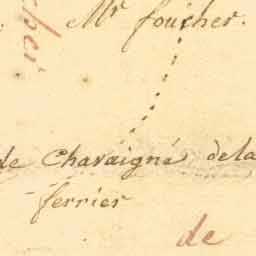 Mr foucher.
cher
de Chavaigné dela
ferrier
de